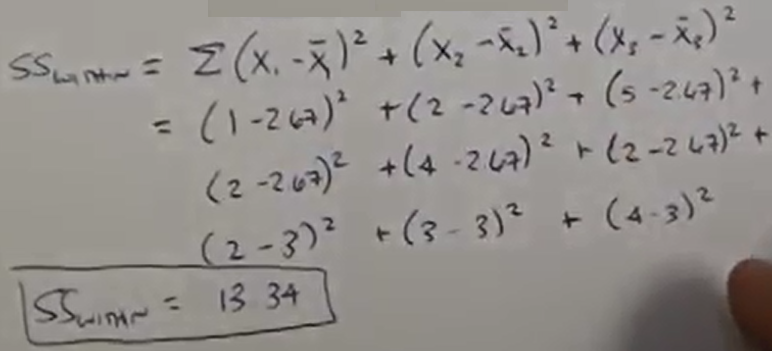 SS_WITHIN = Σ(X₁ - X̄₁)² + (X₂ - X̄₂)² + (X₃ - X̄₃)²
= (1 - 2.67)² + (2 - 2.67)² + (5 - 2.67)² +
(2 - 2.67)² + (4 - 2.67)² + (2 - 2.67)² +
(2 - 3)² + (3 - 3)² + (4 - 3)²
SS_WITHIN = 13.34